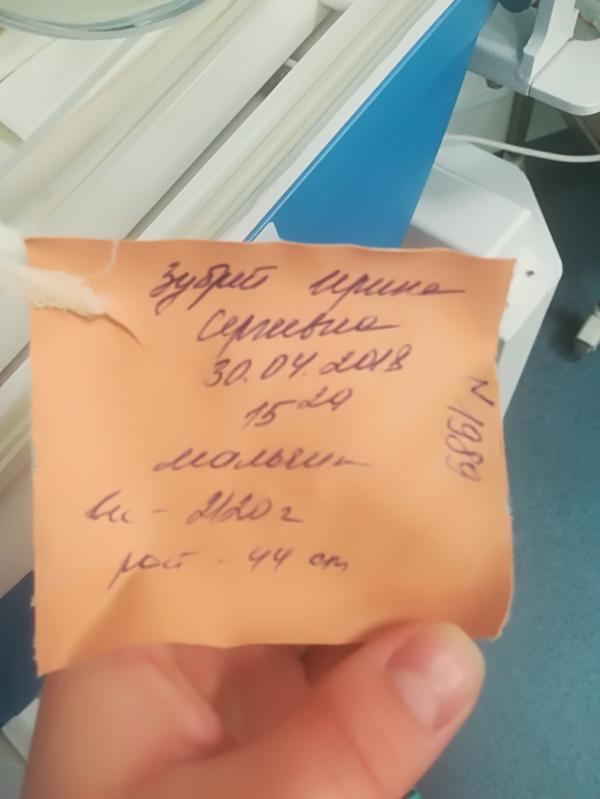 Зубрей Ирина
Сергеевна
30.04.2018
15 20
мальчик
вес - 2120 г
рост - 44 см
N 1989